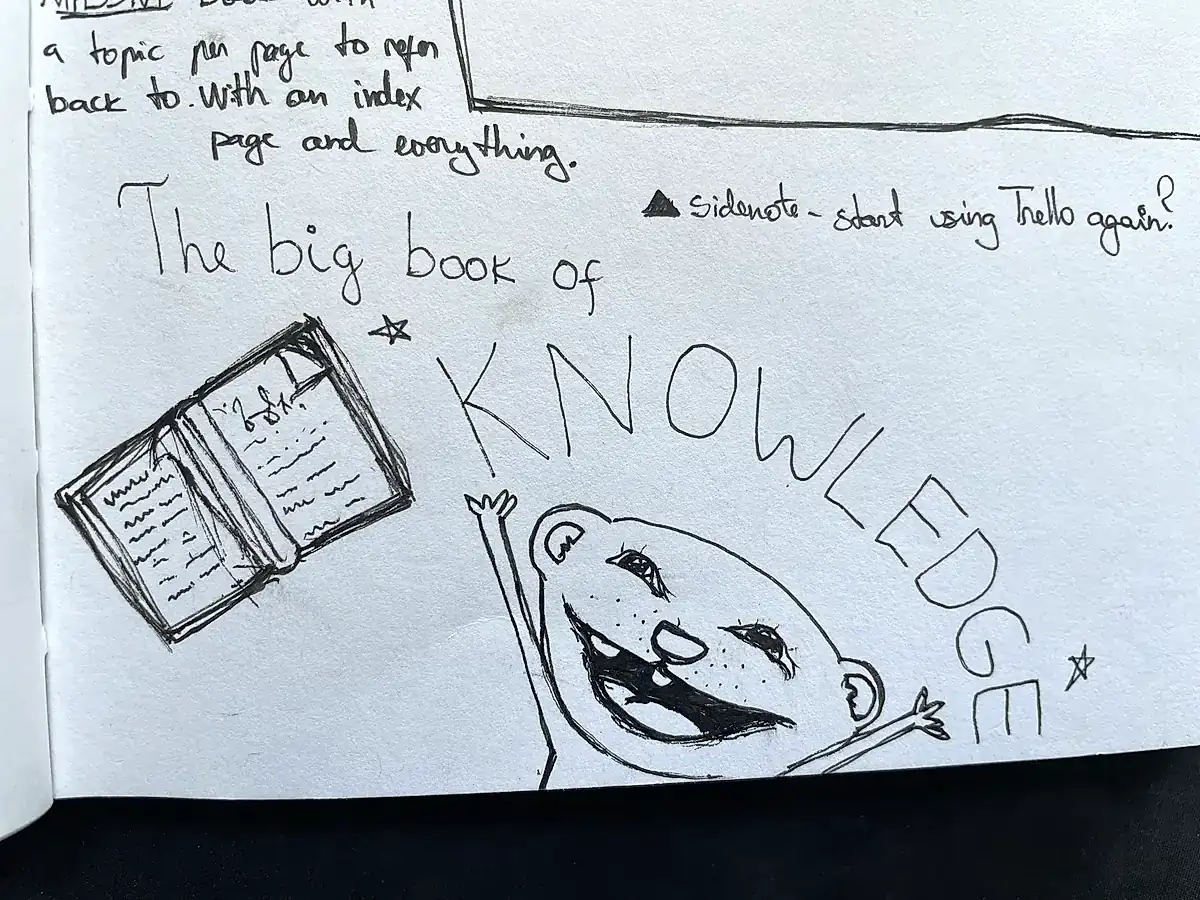 MASSIVE book with
a topic per page to refer
back to. With an index
page and everything.
▲ sidenote - start using Trello again?
The big book of
KNOWLEDGE